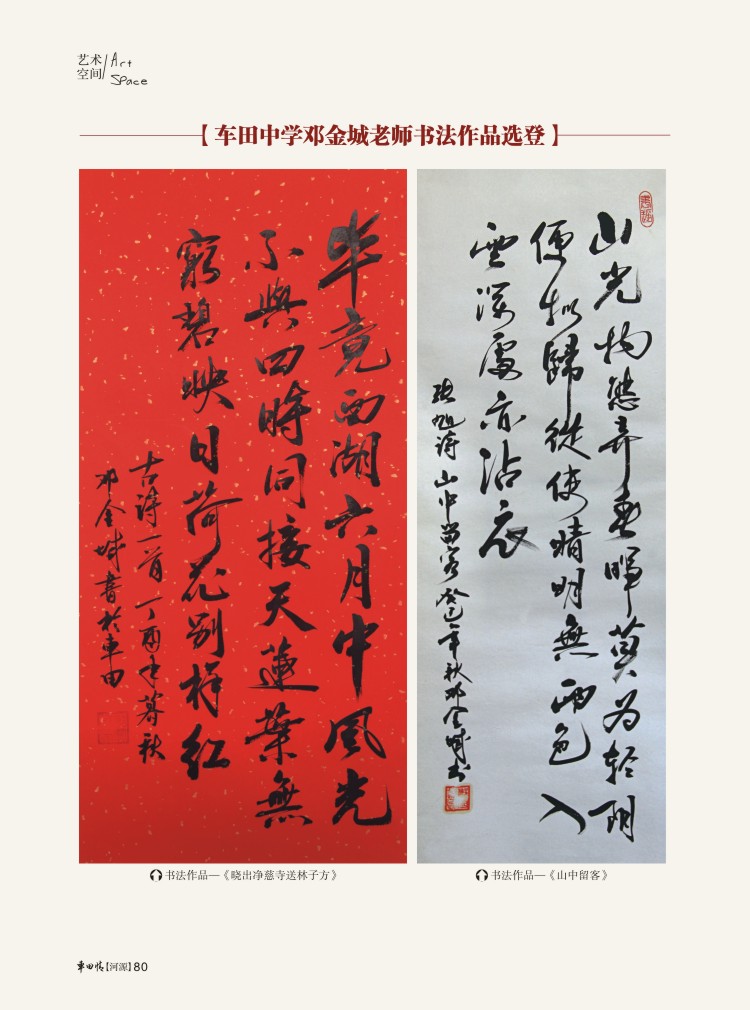 艺术 Art
空间 Space
【车田中学邓金城老师书法作品选登】
畢竟西湖六月中風光
不與四時同接天蓮葉無
窮碧映日荷花别样红
古诗一首丁酉年暮秋
邓金城書於車田
山光物態弄春暉莫为轻阴
便拟歸從使晴明無雨色入
雲深處亦沾衣
张旭诗山中留客癸巳年秋邓金城书
书法作品—《晓出净慈寺送林子方》
书法作品—《山中留客》
車田情【河源】80